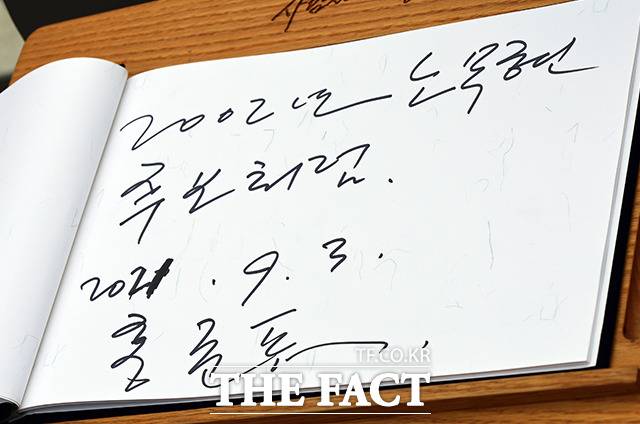 2002년 노무현
후보처럼.
2021. 9. 3.
홍준표
TF.CO.KR
THE FACT